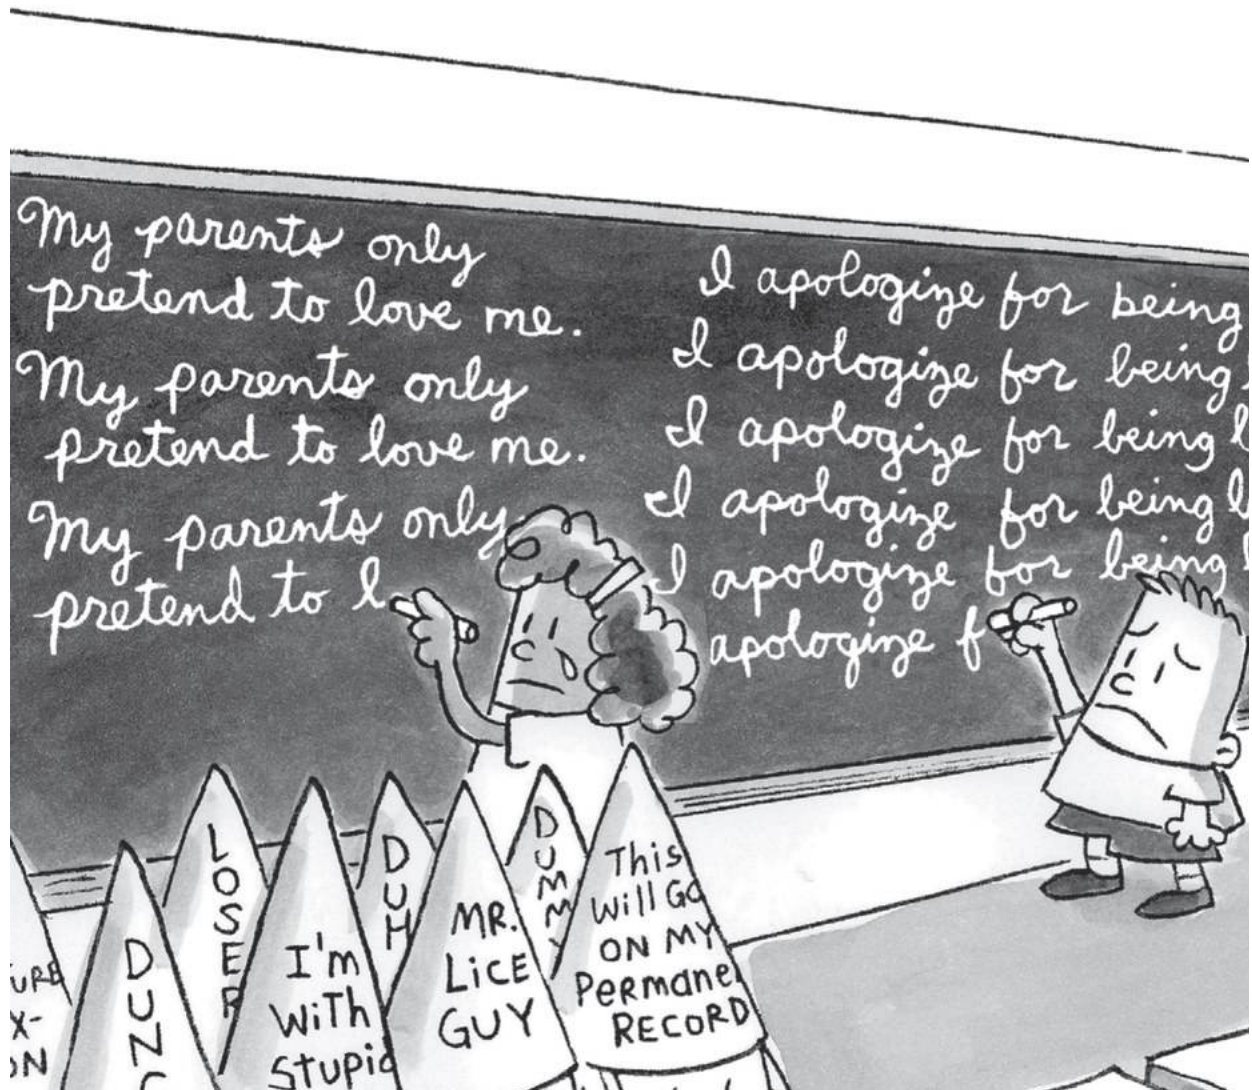 My parents only
pretend to love me.
My parents only
pretend to love me.
My parents only
pretend to l
I apologize for being
I apologize for being
I apologize for being
I apologize for being
I apologize for being
apologize f
DUNC
LOSER
I'm
WiTh
Stupid
DUH
MR.
LiCE
GUY
DUMMY
This
Will GO
ON MY
PeRMane
RECORD